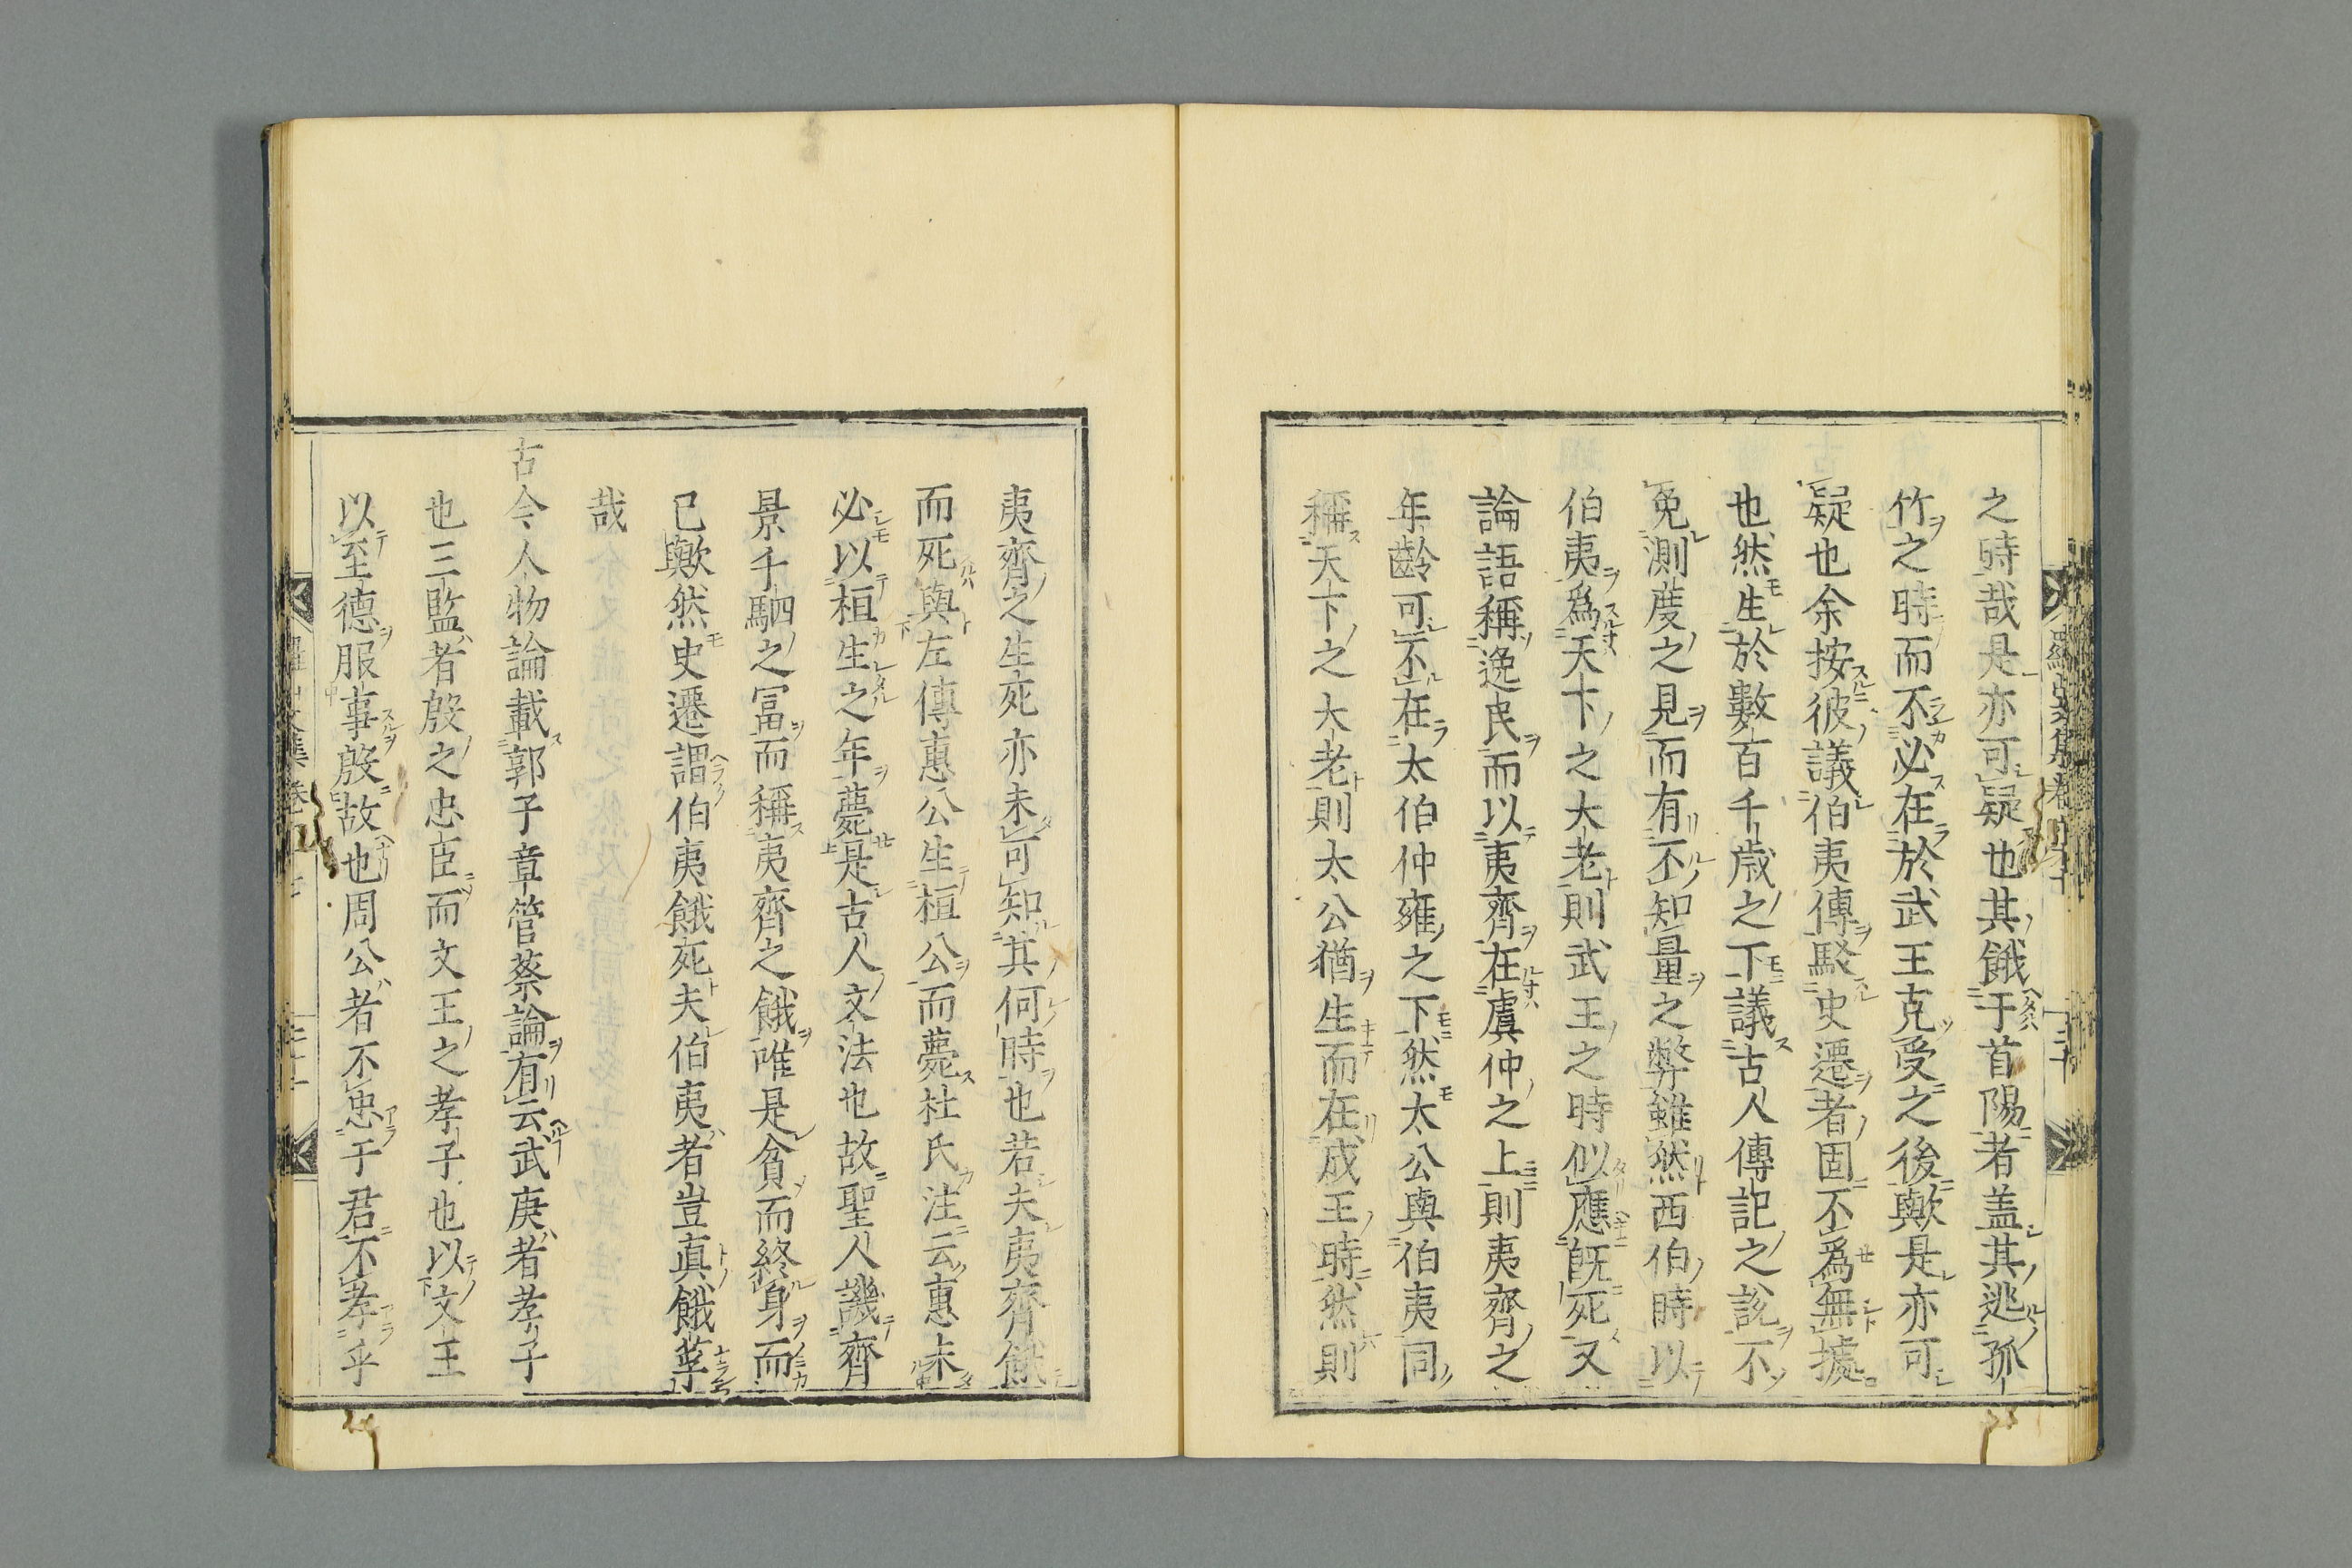 之時哉是亦可疑也其餓于首陽者盖其逃孤
竹之時而不必在於武王克受之後歟是亦可
疑也余按彼議伯夷傳駁史遷者固不爲無據
也然生於數百千歳之下議古人傳記之説不
免測度之見而有不知量之弊雖然西伯時以
伯夷爲天下之大老則武王之時似應既死又
論語稱逸民而以夷齊在虞仲之上則夷齊之
年齡可不在太伯仲雍之下然太公與伯夷同
稱天下之大老則太公猶生而在成王時然則
夷齊之生死亦未可知其何時也若夫夷齊餓
而死與左傳惠公生桓公而薨杜氏注云惠未
必以桓生之年薨是古人文法也故聖人譏齊
景千駟之冨而稱夷齊之餓唯是貧而終身而
已歟然史遷謂伯夷餓死夫伯夷者豈眞餓莩
哉
古今人物論載郭子章管蔡論有云武庚者孝子
也三監者殷之忠臣而文王之孝子也以文王
以至德服事殷故也周公者不忠于君不孝乎